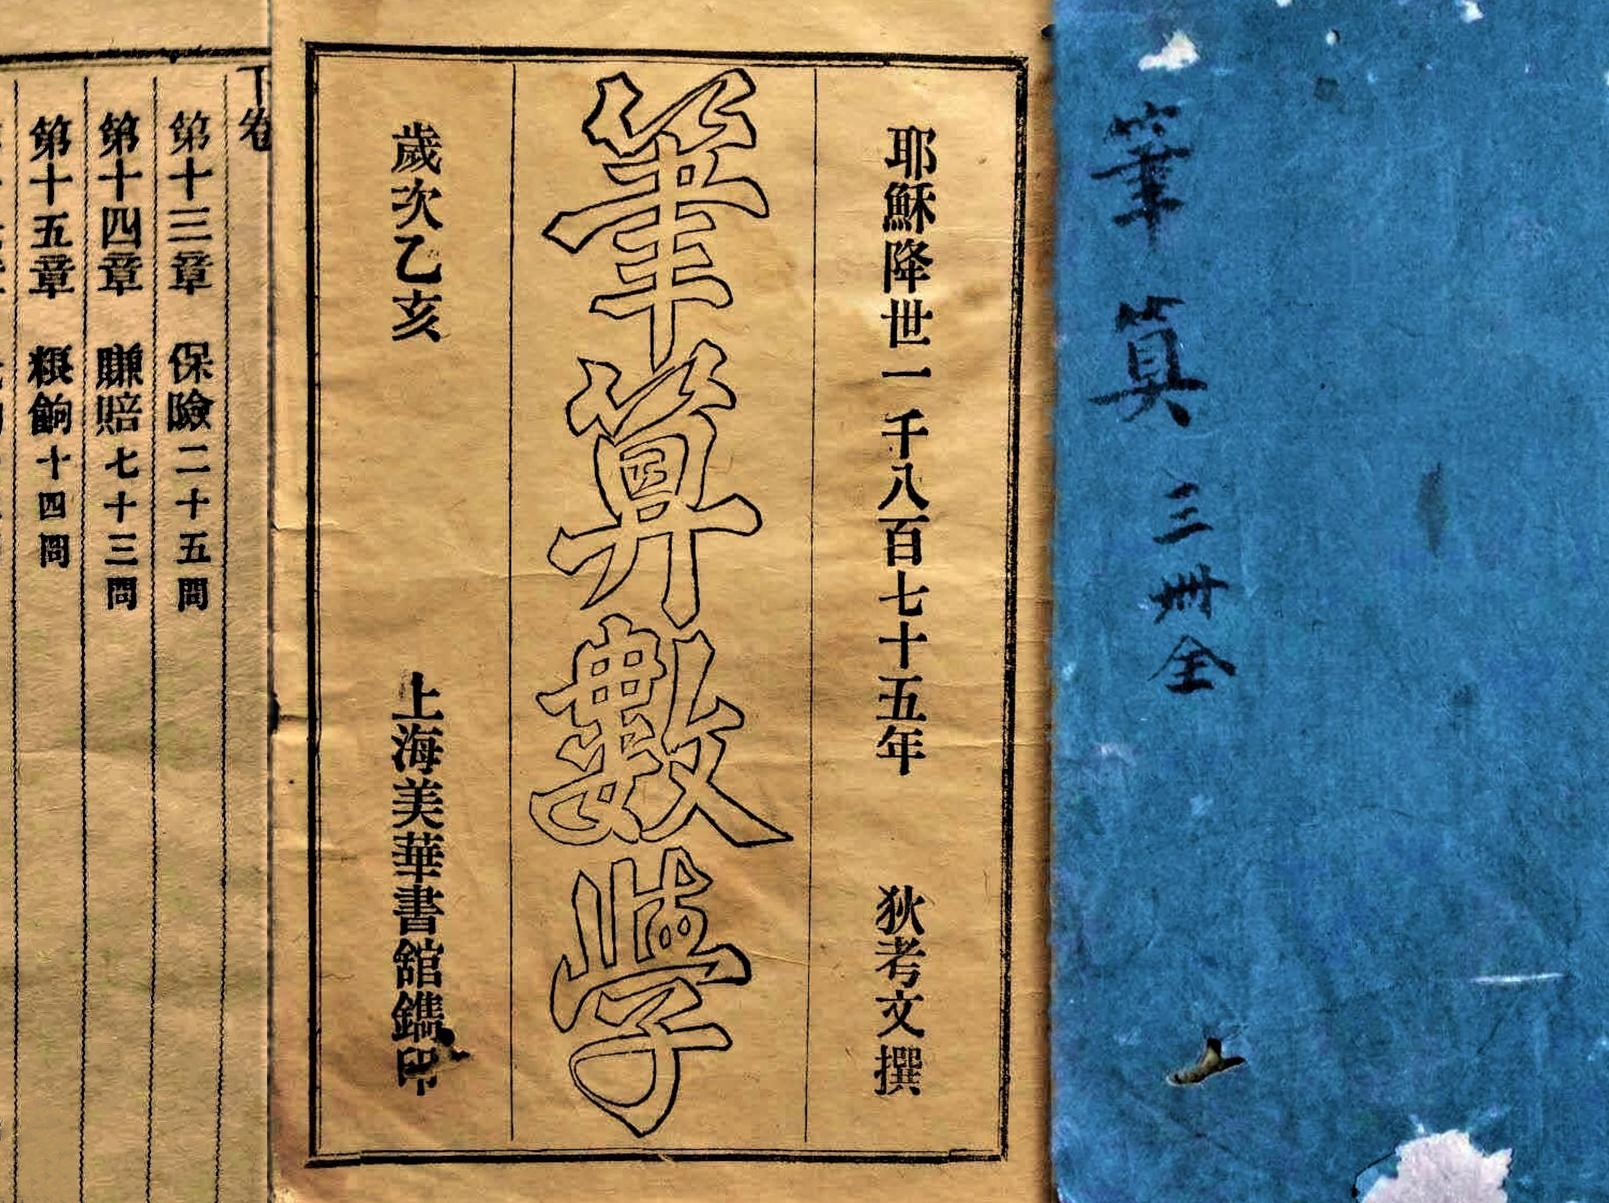 筆算
三卌全
耶穌降世一千八百七十五年 狄考文撰
筆算數學
歲次乙亥 上海美華書舘鐫印
下卷
第十三章 保險二十五問
第十四章 賺賠七十三問
第十五章 粮餉十四問